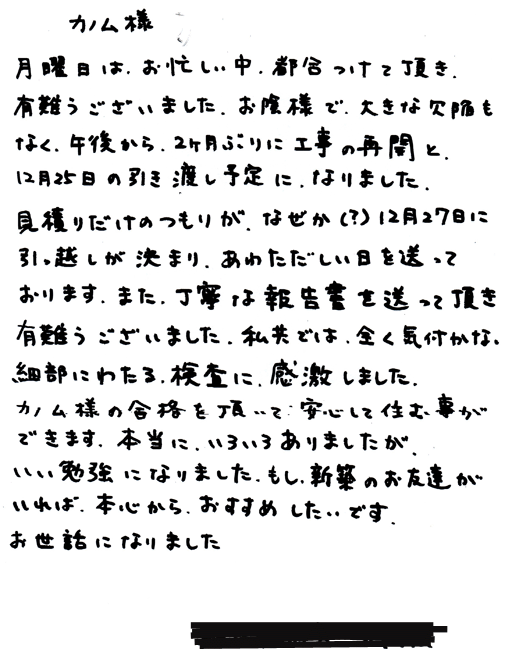 カノム様
月曜日は、お忙しい中、都合つけて頂き、
有難うございました。お陰様で、大きな欠陥も
なく、午後から、2ヶ月ぶりに工事の再開と、
12月25日の引き渡し予定に、なりました。
見積りだけのつもりが、なぜか(?)12月27日に
引っ越しが決まり、あわただしい日を送って
おります。また、丁寧な報告書を送って頂き
有難うございました。私共では、全く気付かない
細部にわたる、検査に、感激しました。
カノム様の合格を頂いて、安心して住む事が
できます。本当に、いろいろありましたが、
いい勉強になりました。もし、新築のお友達が
いれば、本心から、おすすめしたいです。
お世話になりました